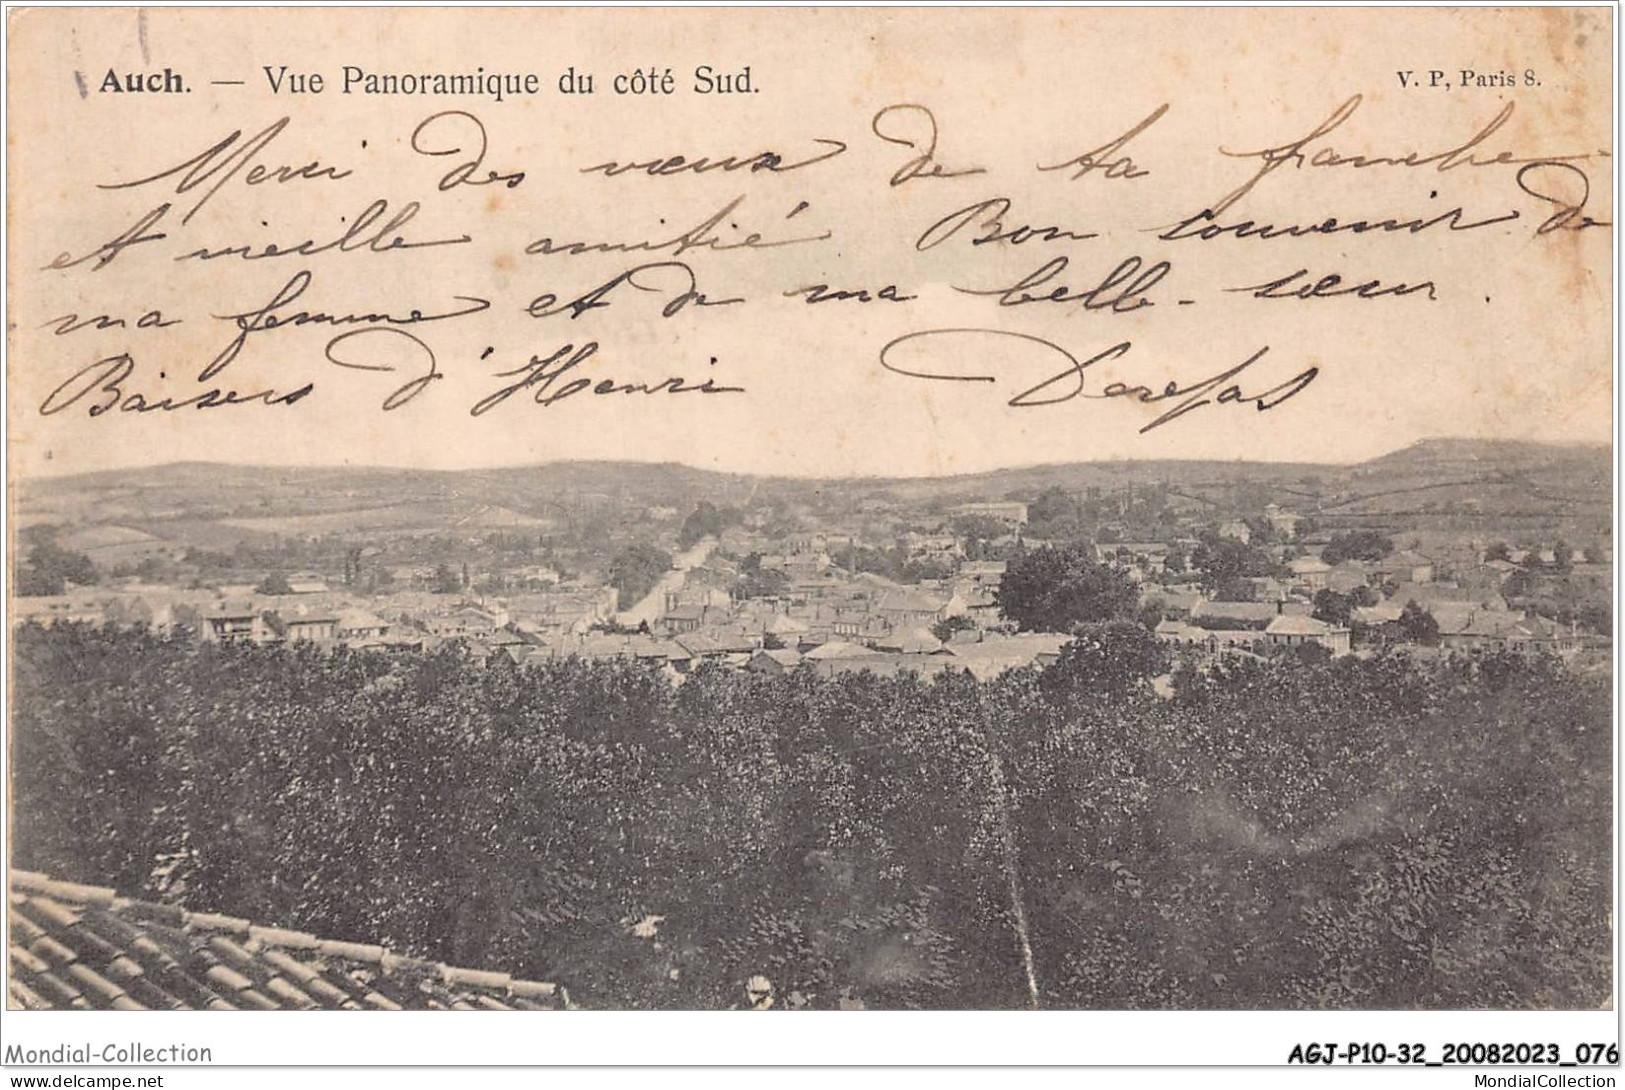 Auch. — Vue Panoramique du côté Sud.
V. P, Paris 8.
Merci des vœux de ta franche
et vieille amitié Bon souvenir de
ma femme et de ma belle-sœur.
Baisers d'Henri
Mondial-Collection
AGJ-P10-32_20082023_076
www.delcampe.net
MondialCollection